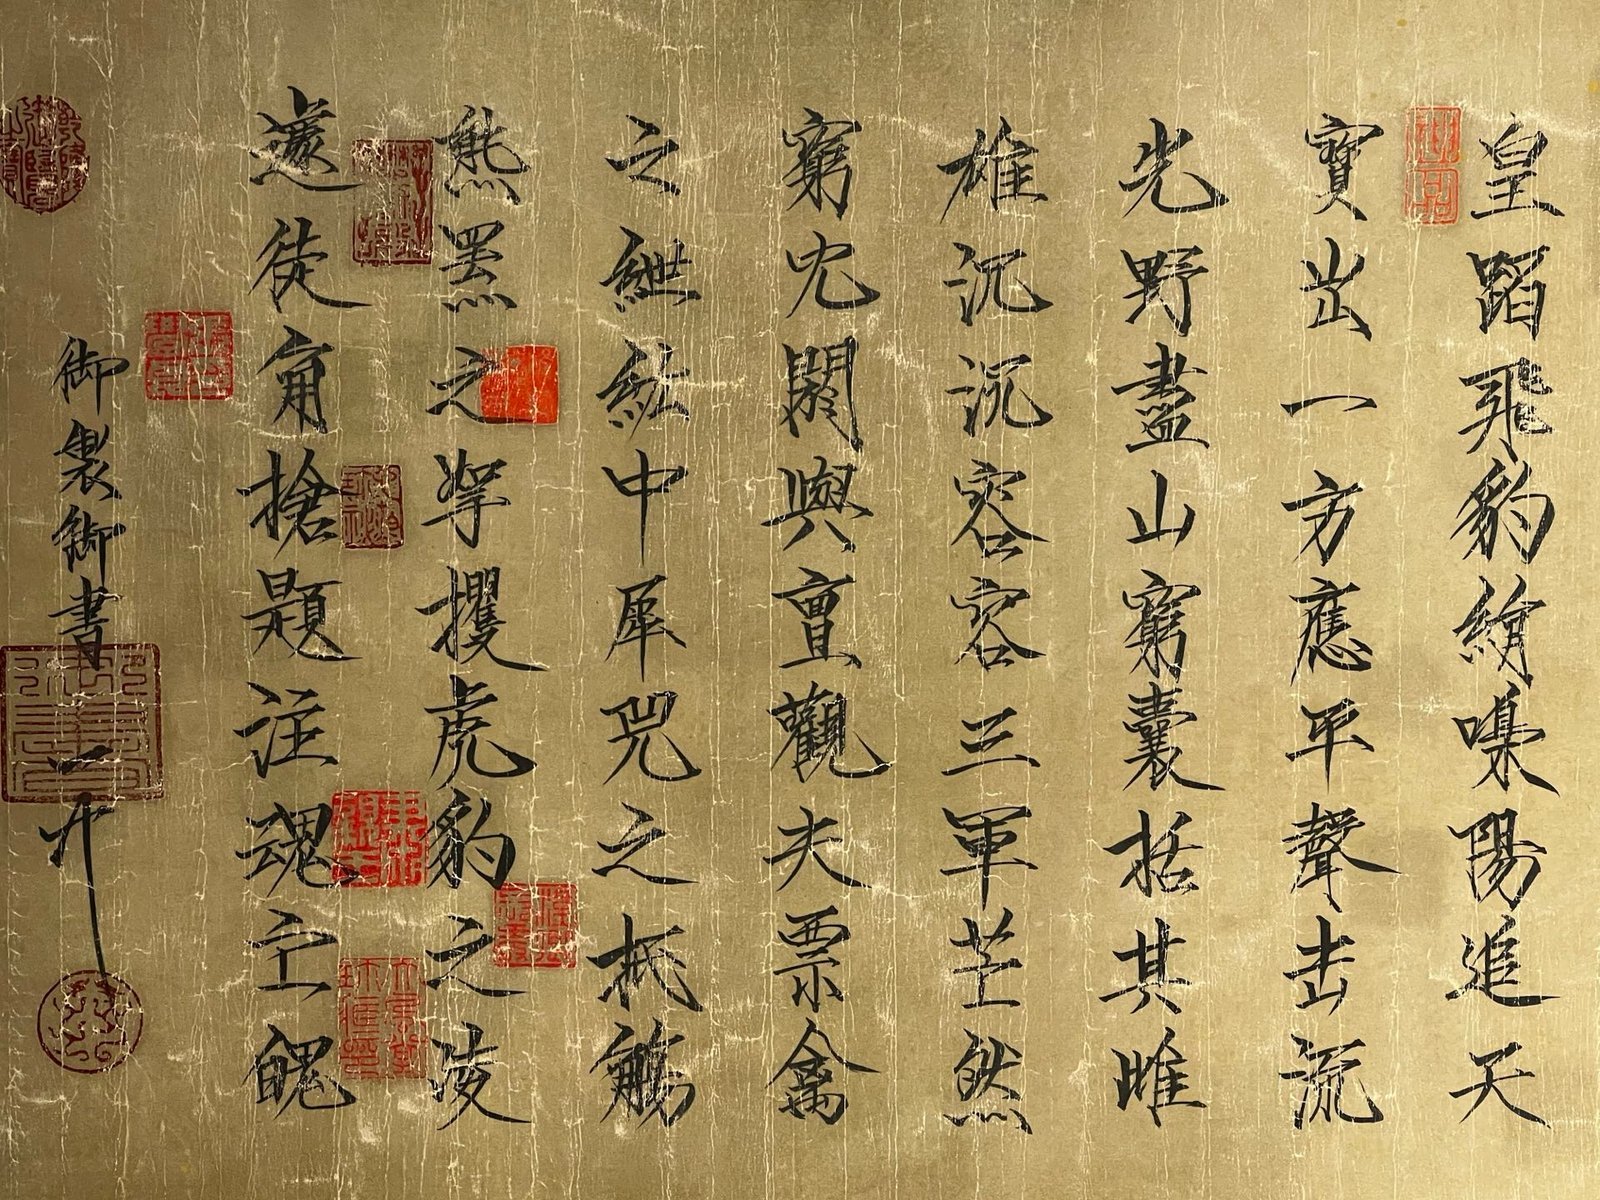 皇蹈飛豹絹嘄陽追天
寶出一方應平聲击流
光野盡山窮囊括其雌
雄沉沉容容三軍芒然
窮冘閼與亶觀夫票禽
之紲紘中犀兕之抵觸
熊羆之挐攫虎豹之凌
遽徒角搶題注魂亡魄
御製御書